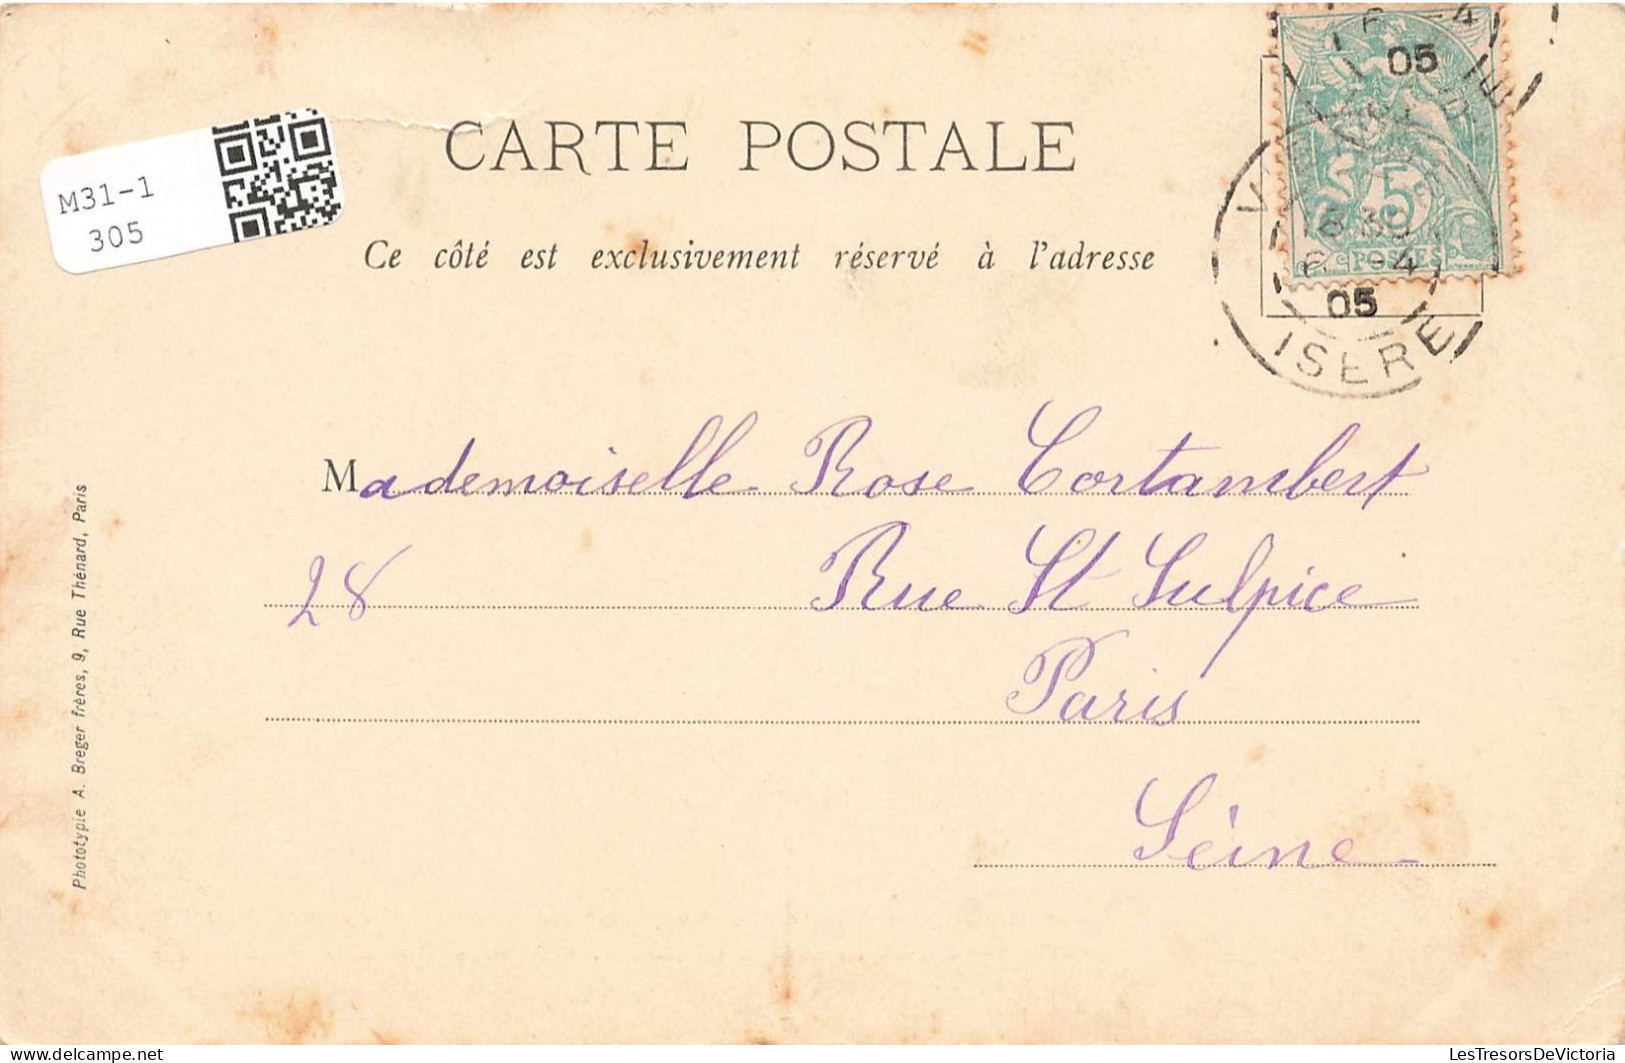 CARTE POSTALE
M31-1
305
Ce côté est exclusivement réservé à l'adresse
5c
POSTES
6 -4
05
6 -4
05
ISERE
Mademoiselle Rose Cortambert
28 Rue St Sulpice
Paris
Séine
Phototypie A. Breger frères, 9, Rue Thénard, Paris
www.delcampe.net
LesTresorsDeVictoria